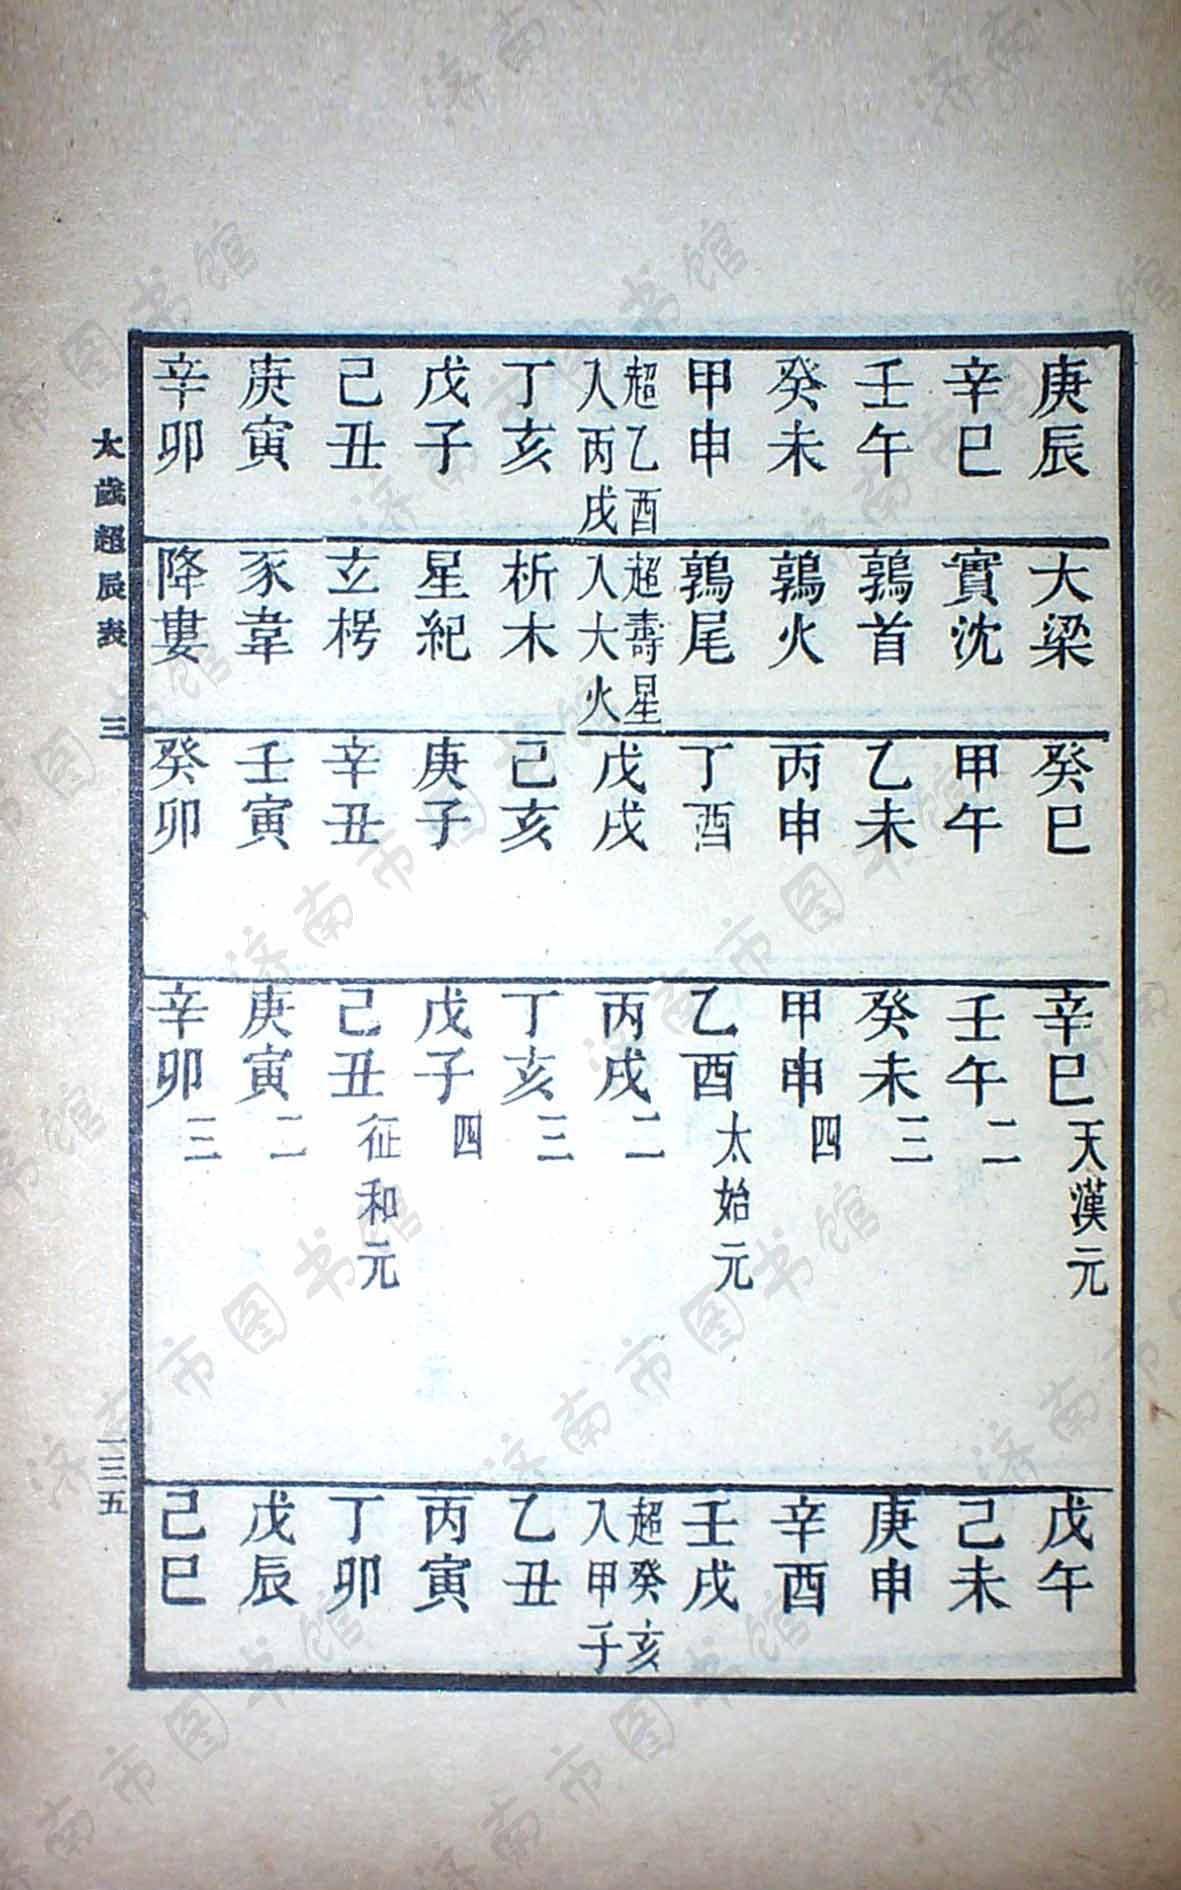 庚辰 大梁 癸巳 辛巳天漢元 戊午
辛巳 實沈 甲午 壬午二 己未
壬午 鶉首 乙未 癸未三 庚申
癸未 鶉火 丙申 甲申四 辛酉
甲申 鶉尾 丁酉 乙酉太始元 壬戌
超乙酉入丙戌 超壽星入大火 戊戌 丙戌二 超癸亥入甲子
丁亥 析木 己亥 丁亥三 乙丑
戊子 星紀 庚子 戊子四 丙寅
己丑 玄枵 辛丑 己丑征和元 丁卯
庚寅 豕韋 壬寅 庚寅二 戊辰
辛卯 降婁 癸卯 辛卯三 己巳
太歲超辰表 三 一三五
济南市图书馆